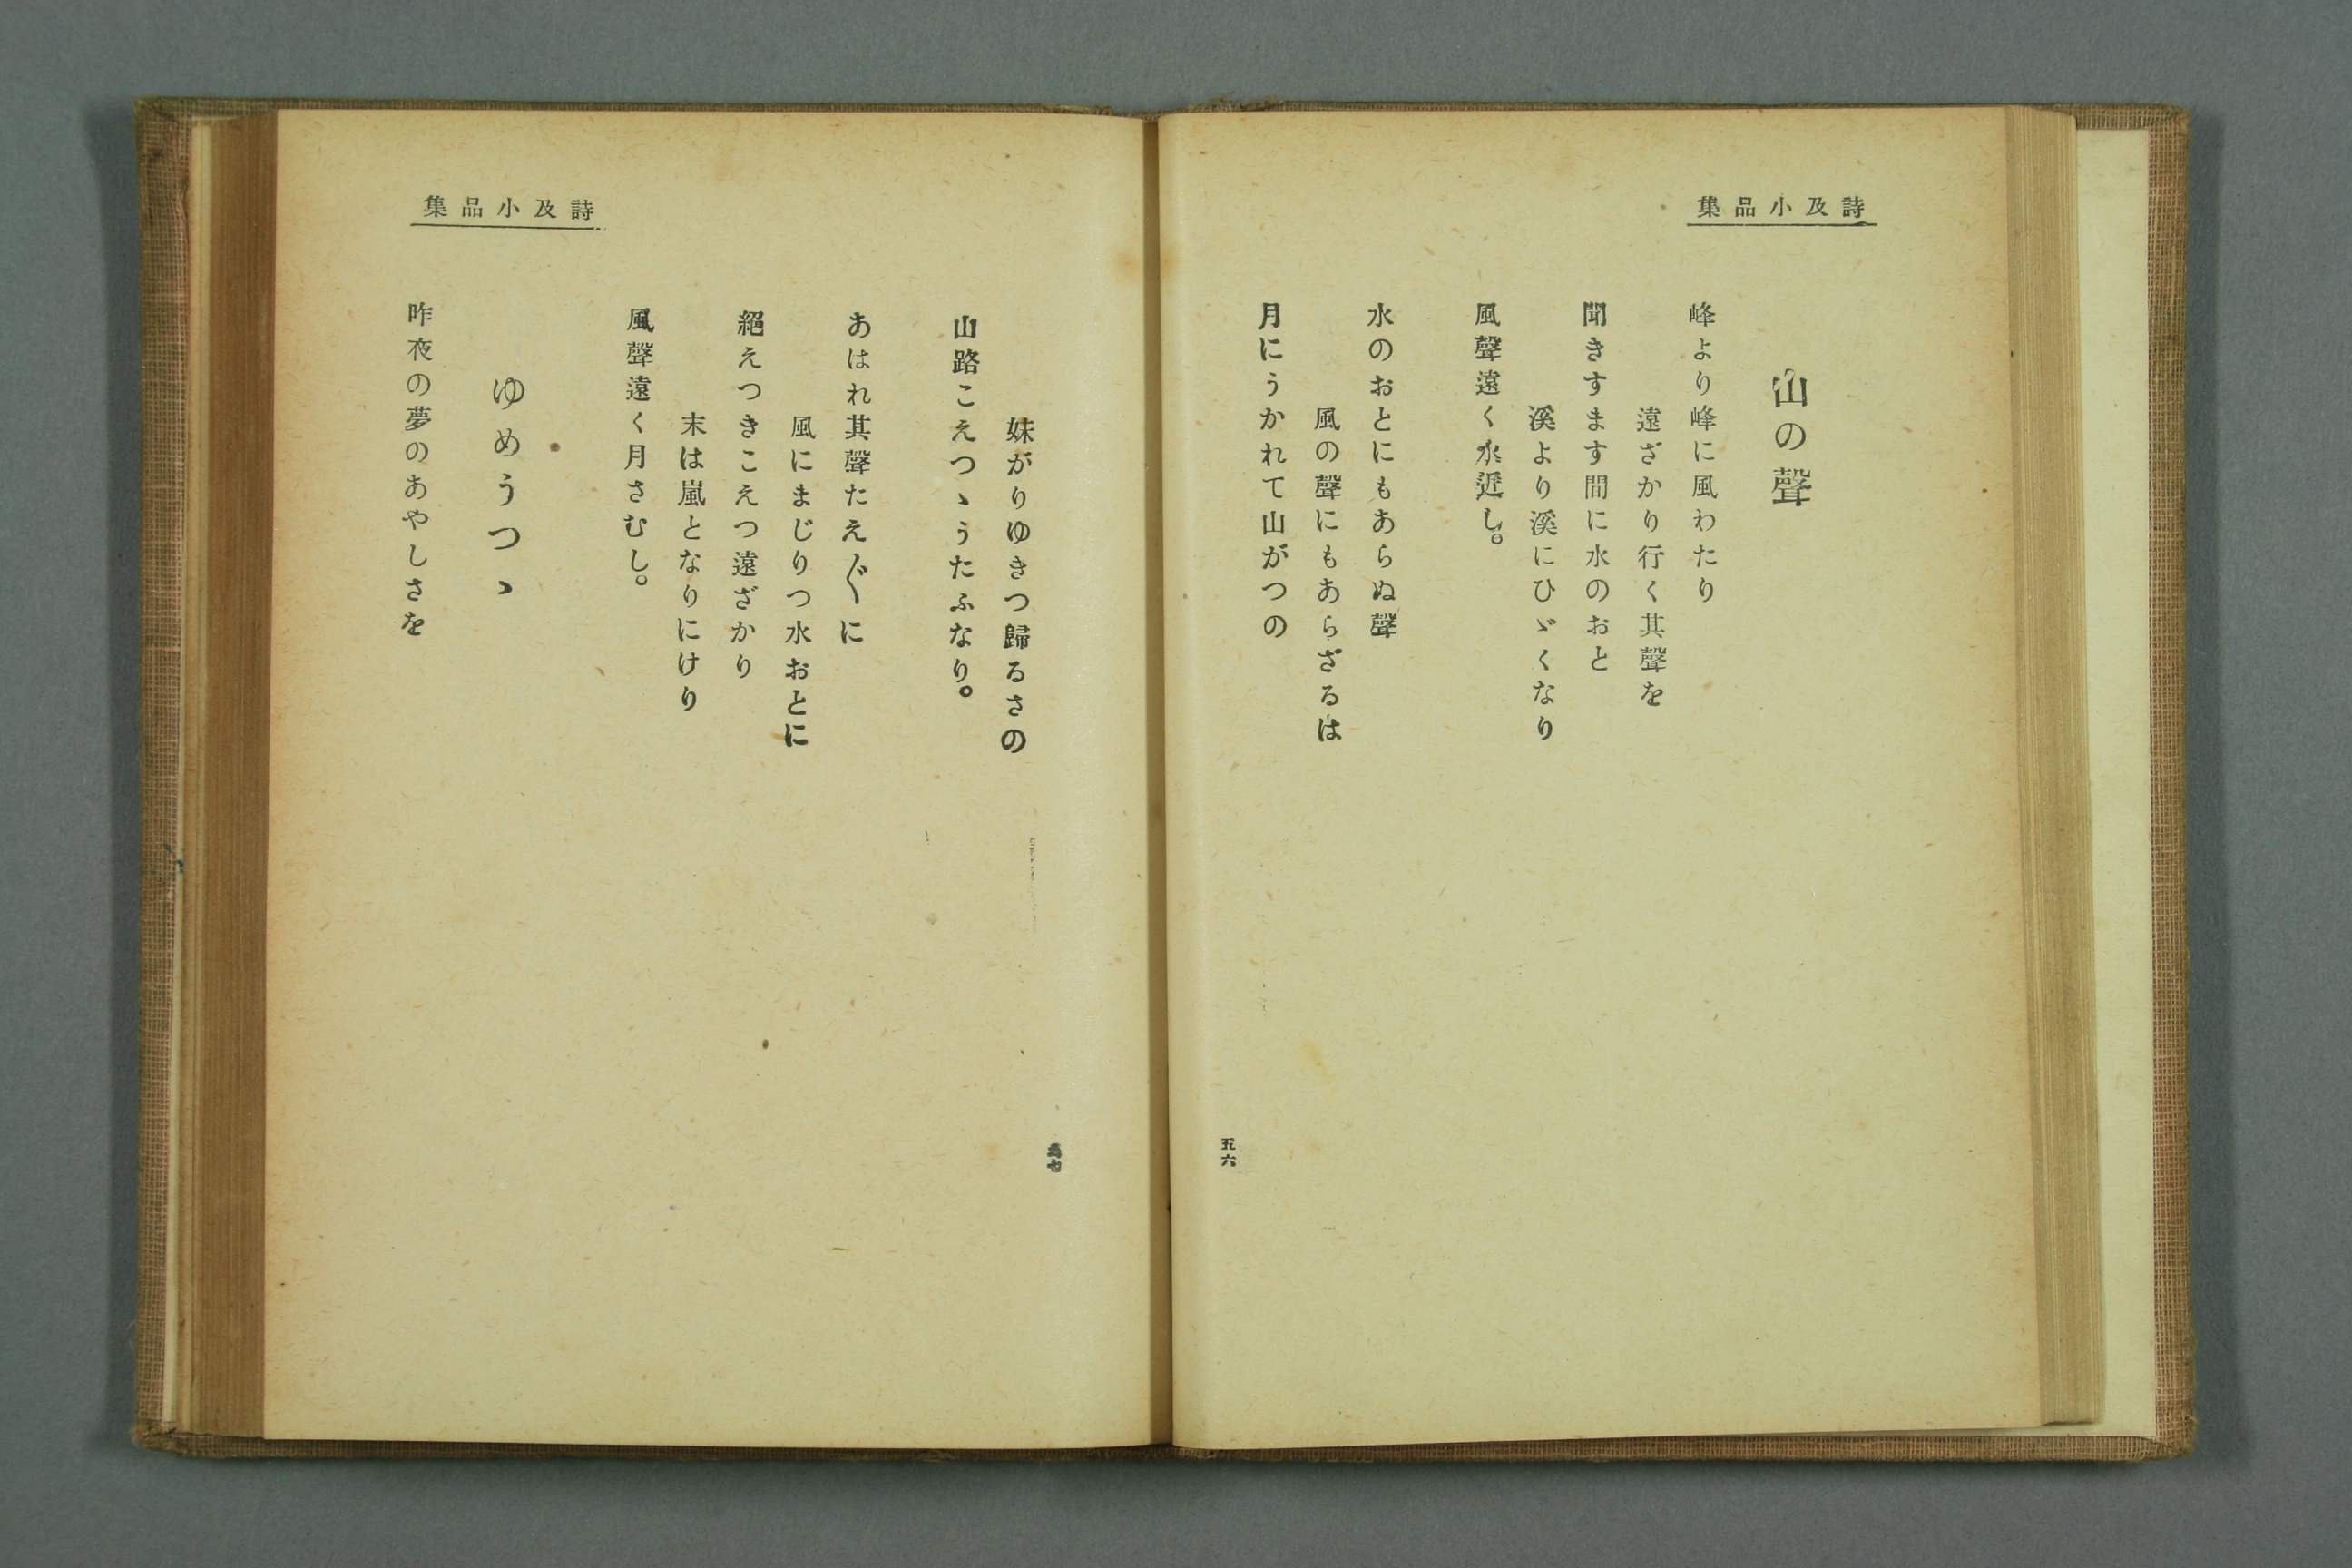 詩及小品集
山の聲
峰より峰に風わたり
遠ざかり行く其聲を
聞きすます間に水のおと
溪より溪にひゞくなり
風聲遠く水近し。
水のおとにもあらぬ聲
風の聲にもあらざるは
月にうかれて山がつの
五六
詩及小品集
妹がりゆきつ歸るさの
山路こえつゝうたふなり。
あはれ其聲たえ〴〵に
風にまじりつ水おとに
絕えつきこえつ遠ざかり
末は嵐となりにけり
風聲遠く月さむし。
ゆめうつゝ
昨夜の夢のあやしさを
五七